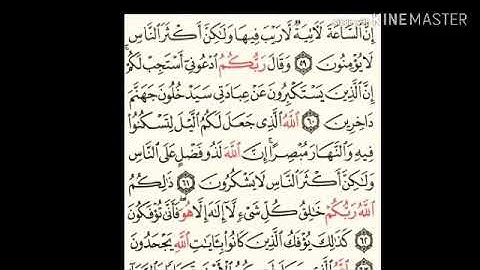 KINEMASTER
إِنَّ ٱلسَّاعَةَ لَءَاتِيَةٌ لَّا رَيْبَ فِيهَا وَلَٰكِنَّ أَكْثَرَ ٱلنَّاسِ
لَا يُؤْمِنُونَ ٥٩ وَقَالَ رَبُّكُمُ ٱدْعُونِىٓ أَسْتَجِبْ لَكُمْ
إِنَّ ٱلَّذِينَ يَسْتَكْبِرُونَ عَنْ عِبَادَتِى سَيَدْخُلُونَ جَهَنَّمَ
دَاخِرِينَ ٦٠ ٱللَّهُ ٱلَّذِى جَعَلَ لَكُمُ ٱلَّيْلَ لِتَسْكُنُوا۟
فِيهِ وَٱلنَّهَارَ مُبْصِرًا إِنَّ ٱللَّهَ لَذُو فَضْلٍ عَلَى ٱلنَّاسِ
وَلَٰكِنَّ أَكْثَرَ ٱلنَّاسِ لَا يَشْكُرُونَ ٦١ ذَٰلِكُمُ
ٱللَّهُ رَبُّكُمْ خَٰلِقُ كُلِّ شَىْءٍ لَّآ إِلَٰهَ إِلَّا هُوَ فَأَنَّىٰ تُؤْفَكُونَ
٦٢ كَذَٰلِكَ يُؤْفَكُ ٱلَّذِينَ كَانُوا۟ بِـَٔايَٰتِ ٱللَّهِ يَجْحَدُونَ